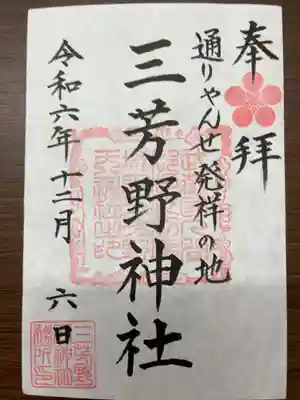 奉拝
通りゃんせ発祥の地
三芳野神社
令和六年十二月六日
三芳野
神社
務所印